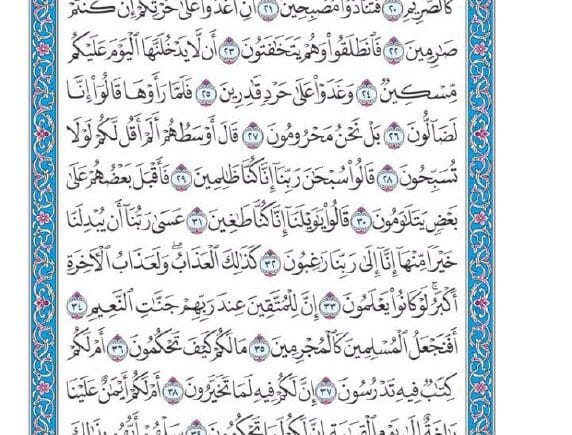 كَٱلصَّرِيمِ ٢٠ فَتَنَادَوْا۟ مُصْبِحِينَ ٢١ أَنِ ٱغْدُوا۟ عَلَىٰ حَرْثِكُمْ إِن كُنتُمْ
صَٰرِمِينَ ٢٢ فَٱنطَلَقُوا۟ وَهُمْ يَتَخَٰفَتُونَ ٢٣ أَن لَّا يَدْخُلَنَّهَا ٱلْيَوْمَ عَلَيْكُم
مِّسْكِينٌ ٢٤ وَغَدَوْا۟ عَلَىٰ حَرْدٍ قَٰدِرِينَ ٢٥ فَلَمَّا رَأَوْهَا قَالُوٓا۟ إِنَّا
لَضَآلُّونَ ٢٦ بَلْ نَحْنُ مَحْرُومُونَ ٢٧ قَالَ أَوْسَطُهُمْ أَلَمْ أَقُل لَّكُمْ لَوْلَا
تُسَبِّحُونَ ٢٨ قَالُوا۟ سُبْحَٰنَ رَبِّنَآ إِنَّا كُنَّا ظَٰلِمِينَ ٢٩ فَأَقْبَلَ بَعْضُهُمْ عَلَىٰ
بَعْضٍ يَتَلَٰوَمُونَ ٣٠ قَالُوا۟ يَٰوَيْلَنَآ إِنَّا كُنَّا طَٰغِينَ ٣١ عَسَىٰ رَبُّنَآ أَن يُبْدِلَنَا
خَيْرًا مِّنْهَآ إِنَّآ إِلَىٰ رَبِّنَا رَٰغِبُونَ ٣٢ كَذَٰلِكَ ٱلْعَذَابُ ۖ وَلَعَذَابُ ٱلْءَاخِرَةِ
أَكْبَرُ ۚ لَوْ كَانُوا۟ يَعْلَمُونَ ٣٣ إِنَّ لِلْمُتَّقِينَ عِندَ رَبِّهِمْ جَنَّٰتِ ٱلنَّعِيمِ ٣٤
أَفَنَجْعَلُ ٱلْمُسْلِمِينَ كَٱلْمُجْرِمِينَ ٣٥ مَا لَكُمْ كَيْفَ تَحْكُمُونَ ٣٦ أَمْ لَكُمْ
كِتَٰبٌ فِيهِ تَدْرُسُونَ ٣٧ إِنَّ لَكُمْ فِيهِ لَمَا تَخَيَّرُونَ ٣٨ أَمْ لَكُمْ أَيْمَٰنٌ عَلَيْنَا
بَٰلِغَةٌ إِلَىٰ يَوْمِ ٱلْقِيَٰمَةِ إِنَّ لَكُمْ لَمَا تَحْكُمُونَ ٣٩ سَلْهُمْ أَيُّهُم بِذَٰلِكَ